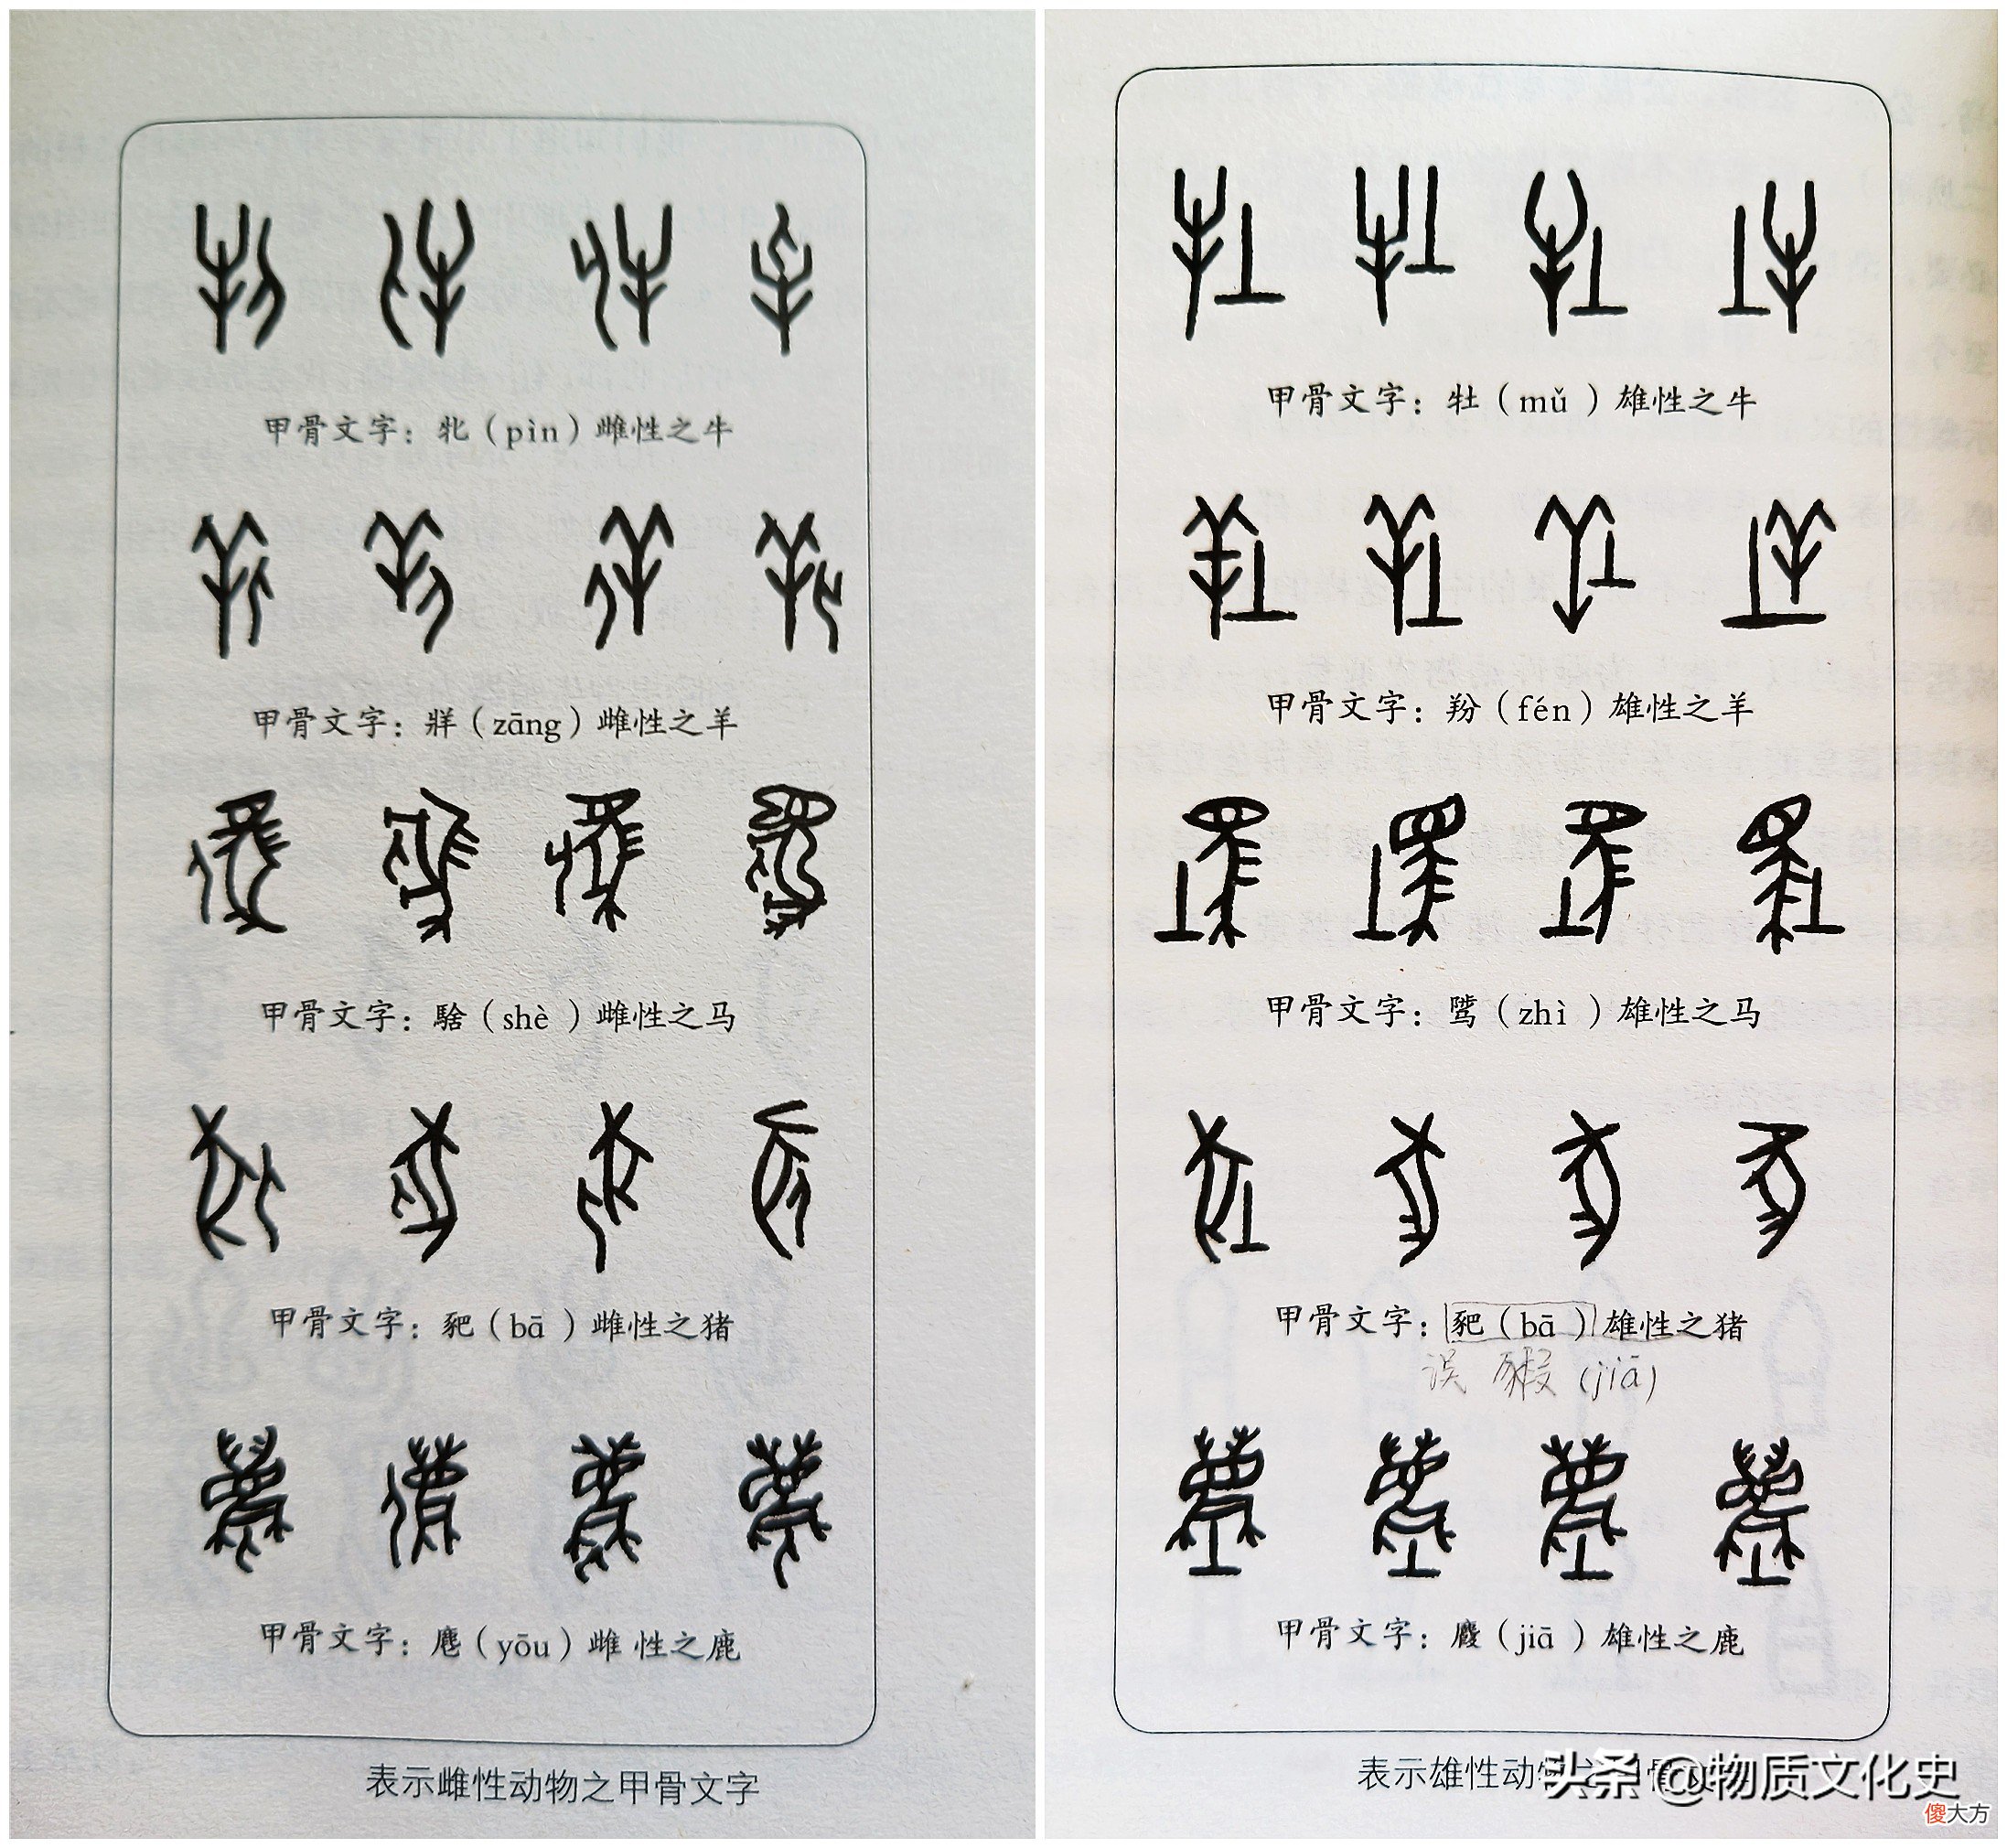 甲骨文字：牝（pìn）雌性之牛
甲骨文字：牂（zāng）雌性之羊
甲骨文字：騇（shè）雌性之马
甲骨文字：豝（bā）雌性之猪
甲骨文字：麀（yōu）雌性之鹿
表示雌性动物之甲骨文字
甲骨文字：牡（mǔ）雄性之牛
甲骨文字：羒（fén）雄性之羊
甲骨文字：骘（zhì）雄性之马
甲骨文字：豝（bā）雄性之猪
误 豭（jiā）
甲骨文字：麚（jiā）雄性之鹿
表示雄性动物之
头条 @物质文化史
傻大方